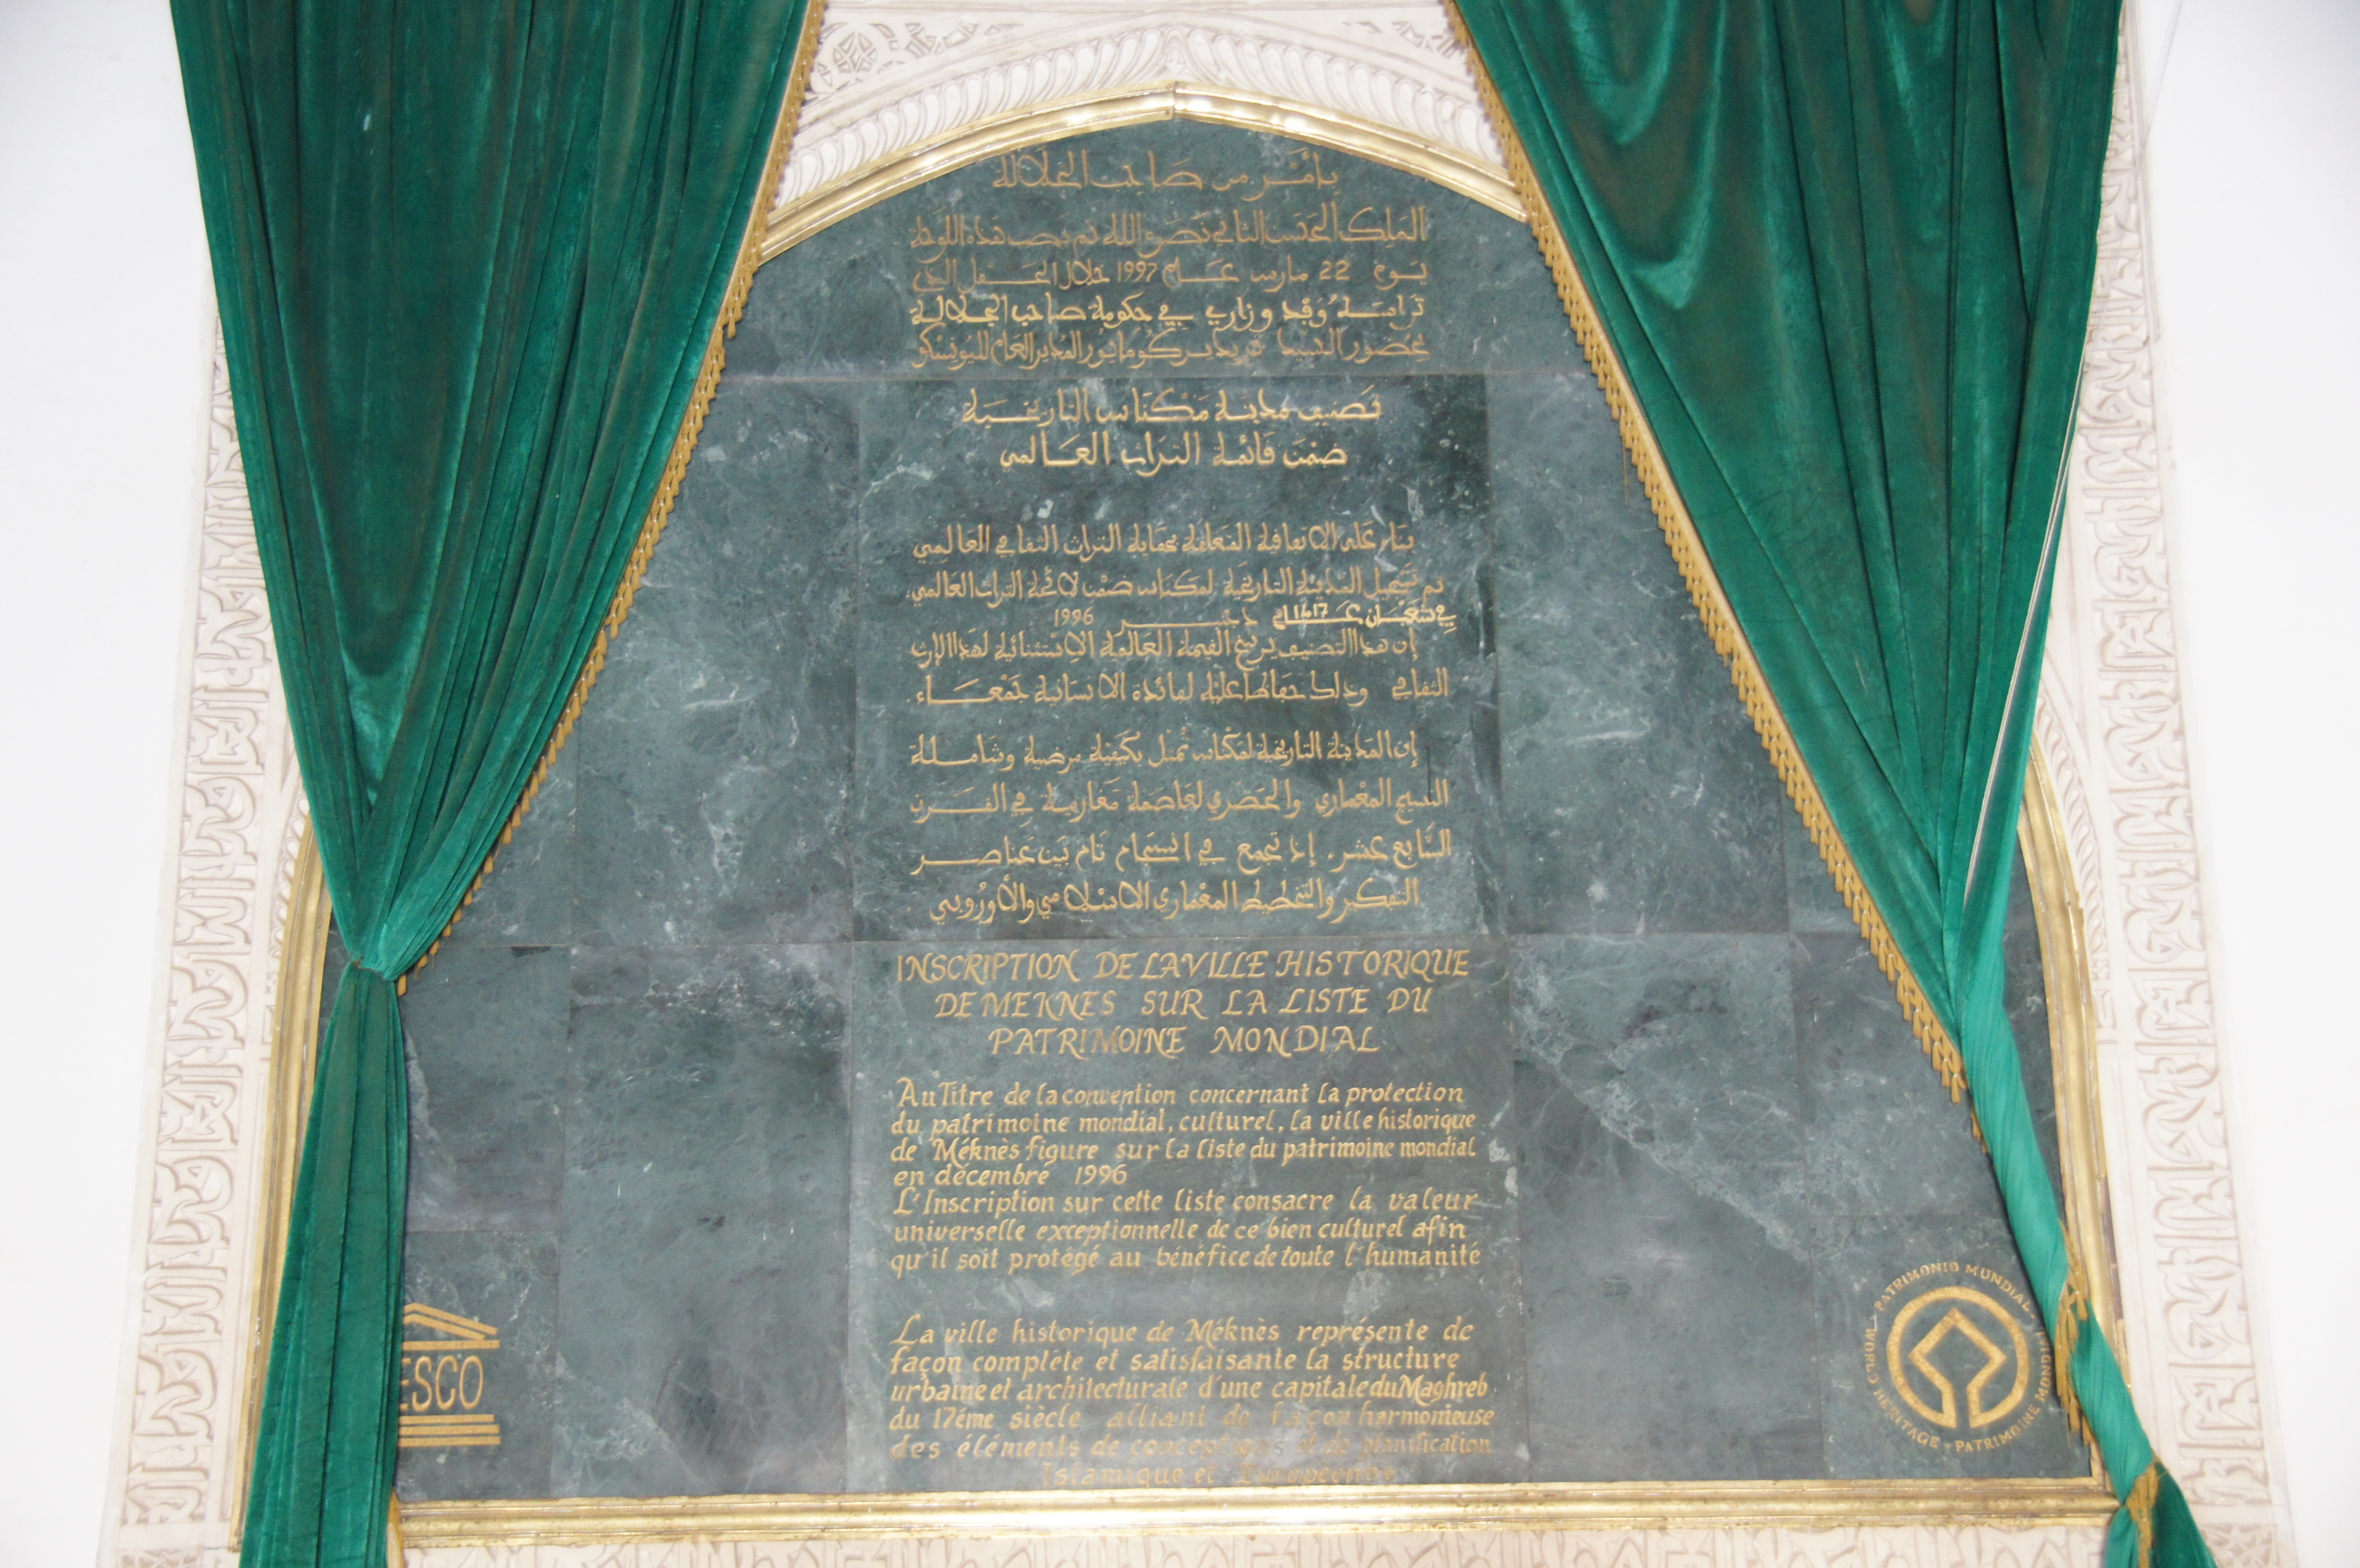 بأمر من صاحب الجلالة
الملك الحسن الثاني نصره الله تم نصب هذه اللوحة
يوم 22 مارس عام 1997 خلال الحفل الذي
ترأسه وفد وزاري في حكومة صاحب الجلالة
بحضور السيد فريديريكو مايور المدير العام لليونسكو
تصنيف مدينة مكناس التاريخية
ضمن قائمة التراث العالمي
بناء على الاتفاقية المتعلقة بحماية التراث الثقافي العالمي
تم تسجيل المدينة التاريخية لمكناس ضمن لائحة التراث العالمي
في شعبان عام 1417 دجنبر 1996
إن هذا التصنيف يرسخ القيمة العالمية الاستثنائية لهذا الإرث
الثقافي وذلك حفاظا عليه لفائدة الانسانية جمعاء
إن المدينة التاريخية لمكناس تمثل بكيفية مرضية وشاملة
النسيج المعماري والحضري لعاصمة مغاربية في القرن
السابع عشر. إذ تجمع في انسجام تام بين عناصر
التفكير والتخطيط المعماري الاسلامي والأوروبي .
INSCRIPTION DE LA VILLE HISTORIQUE
DE MEKNES SUR LA LISTE DU
PATRIMOINE MONDIAL
Au Titre de la convention concernant la protection
du patrimoine mondial, culturel, la ville historique
de Méknès figure sur la liste du patrimoine mondial
en décembre 1996
L'Inscription sur cette liste consacre la valeur
universelle exceptionnelle de ce bien culturel afin
qu'il soit protégé au bénéfice de toute l'humanité
La ville historique de Méknès représente de
façon complète et satisfaisante la structure
urbaine et architecturale d'une capitale du Maghreb
du 17éme siècle alliant de façon harmonieuse
des éléments de conceptions et de planification
Islamique et Européenne
ESCO
WORLD HERITAGE - PATRIMOINE MONDIAL - PATRIMONIO MUNDIAL